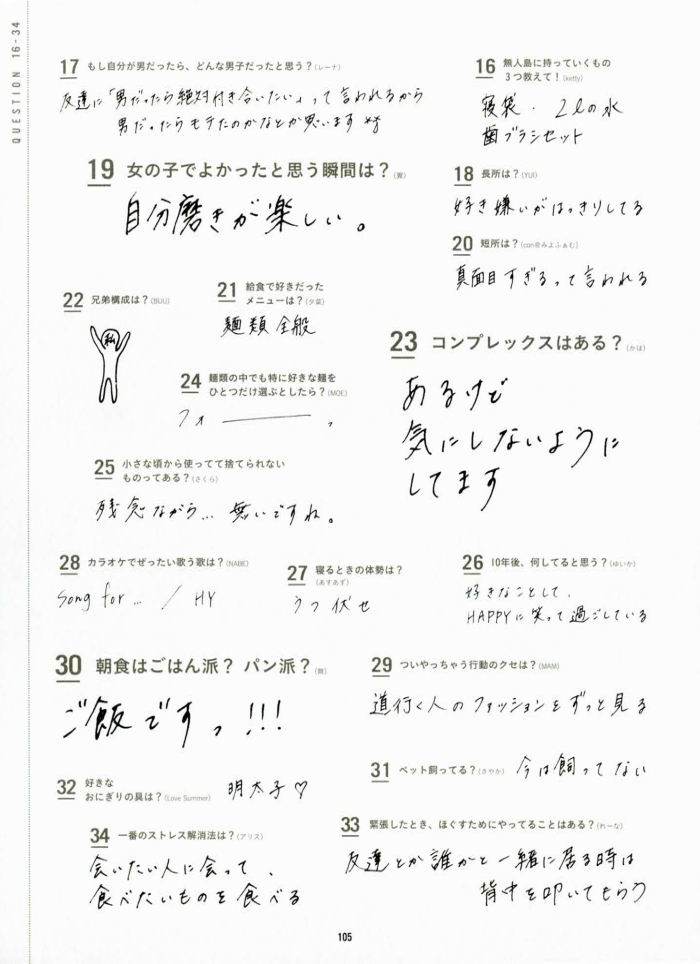 QUESTION 16-34
16 無人島に持っていくもの
3つ教えて！(ketty)
寝袋. 2Lの水
歯ブラシセット
17 もし自分が男だったら、どんな男子だったと思う？(レーナ)
友達に「男だったら絶対付き合いたい」って言われるから
男だったらモテたのかなとか思います
18 長所は？(YUI)
好き嫌いがはっきりしてる
19 女の子でよかったと思う瞬間は？
自分磨きが楽しい。
20 短所は？(con@みよふぁむ)
真面目すぎるって言われる
21 給食で好きだった
メニューは？(夕菜)
麺類全般
22 兄弟構成は？(BUU)
私
23 コンプレックスはある？(かほ)
あるけど
気にしないように
してます
24 麺類の中でも特に好きな麺を
ひとつだけ選ぶとしたら？(MOE)
フォー、
25 小さな頃から使ってて捨てられない
ものってある？(さくら)
残念ながら... 無いですね。
26 10年後、何してると思う？(ゆいか)
好きなことして、
HAPPYに笑って過ごしている
27 寝るときの体勢は？
(あすあず)
うつ伏せ
28 カラオケでぜったい歌う歌は？(NABE)
Song for... / HY
29 ついやっちゃう行動のクセは？(MAM)
道行く人のファッションをずっと見る
30 朝食はごはん派？ パン派？
ご飯ですっ!!!
31 ペット飼ってる？(さやか) 今は飼ってない
32 好きな
おにぎりの具は？(Love Summer) 明太子♡
33 緊張したとき、ほぐすためにやってることはある？(れーな)
友達とか誰かと一緒に居る時は
背中を叩いてもらう
34 一番のストレス解消法は？(アリス)
会いたい人に会って、
食べたいものを食べる
105